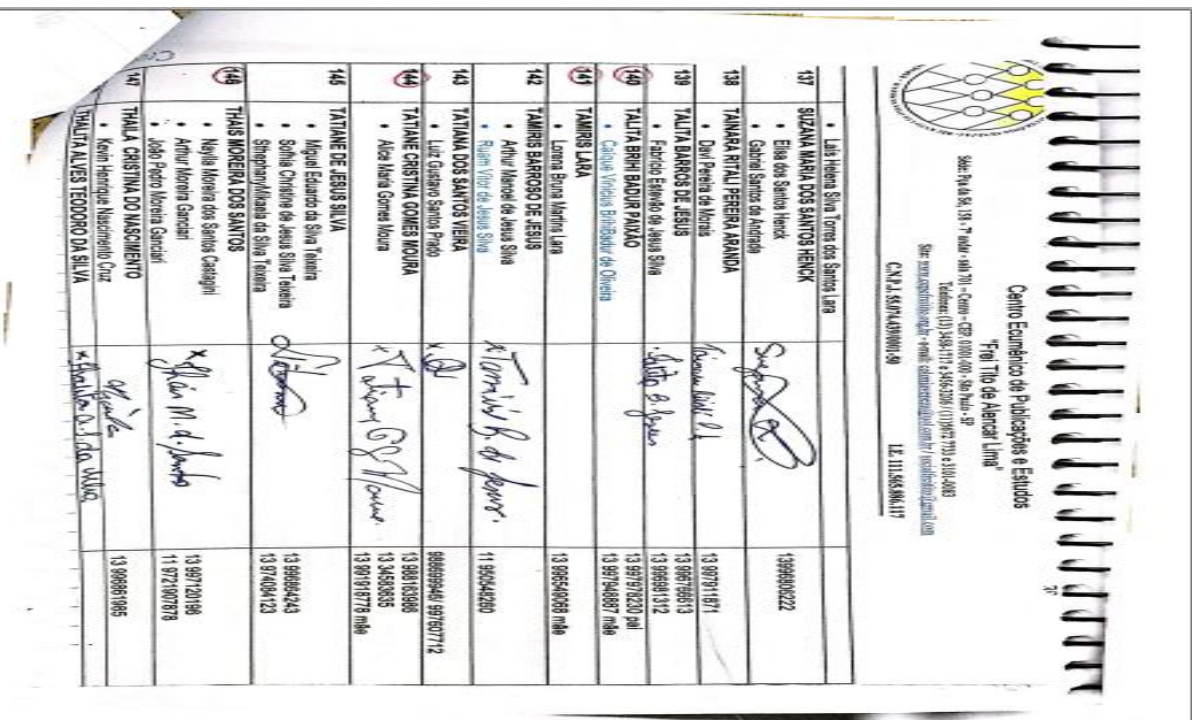 Centro Ecumênico de Publicações e Estudos
"Frei Tito de Alencar Lima"
Sede: Pça da Sé, 158 - 7º andar - sala 701 – Centro – CEP. 01001-000 - São Paulo - SP
C.N.P.J. 58.074.439/0001-90 I.E. 111.565.886.117
• Laís Helena Silva Torres dos Santos Lara
137 SUZANA MARIA DOS SANTOS HENCK
• Elisa dos Santos Henck
• Gabriel Santos de Andrade
13996306222
138 TAINARA RITALI PEREIRA ARANDA
• Davi Pereira de Morais
13 997911871
139 TALITA BARROS DE JESUS
• Fabrício Estevão de Jesus Silva
13 996766613
13 996981312
140 TALITA BRIHI BADUR PAIXÃO
• Caíque Vinicius BrihiBadur de Oliveira
13 997978230 pai
13 997948887 mãe
141 TAMIRIS LARA
• Lorena Bruna Martins Lara
13 996549268 mãe
142 TAMIRIS BARROSO DE JESUS
• Arthur Manoel de Jesus Silva
• Ruam Vitor de Jesus Silva
x Tamiris B. de Jesus.
11 950548260
143 TATIANA DOS SANTOS VIEIRA
• Luiz Gustavo Santos Prado
x
144 TATIANE CRISTINA GOMES MOURA
• Alice Maria Gomes Moura
x Tatiane C G Moura.
13 988163986
13 34583635
13 991918778 mãe
145 TATIANE DE JESUS SILVA
• Miguel Eduardo da Silva Teixeira
• Sofhia Christine de Jesus Silva Teixeira
• SthephanyMikaela da Silva Teixeira
13 996864243
13 974084123
146 THAIS MOREIRA DOS SANTOS
• Naylla Moreira dos Santos Castagini
• Arthur Moreira Ganciari
• João Pedro Moreira Ganciari
x Thais M. d. Santos
13 997120196
11 972190878
147 THAILA CRISTINA DO NASCIMENTO
• Kevin Henrique Nascimento Cruz
13 996861985
THALITA ALVES TEODORO DA SILVA
x Thalita A. T. da Silva